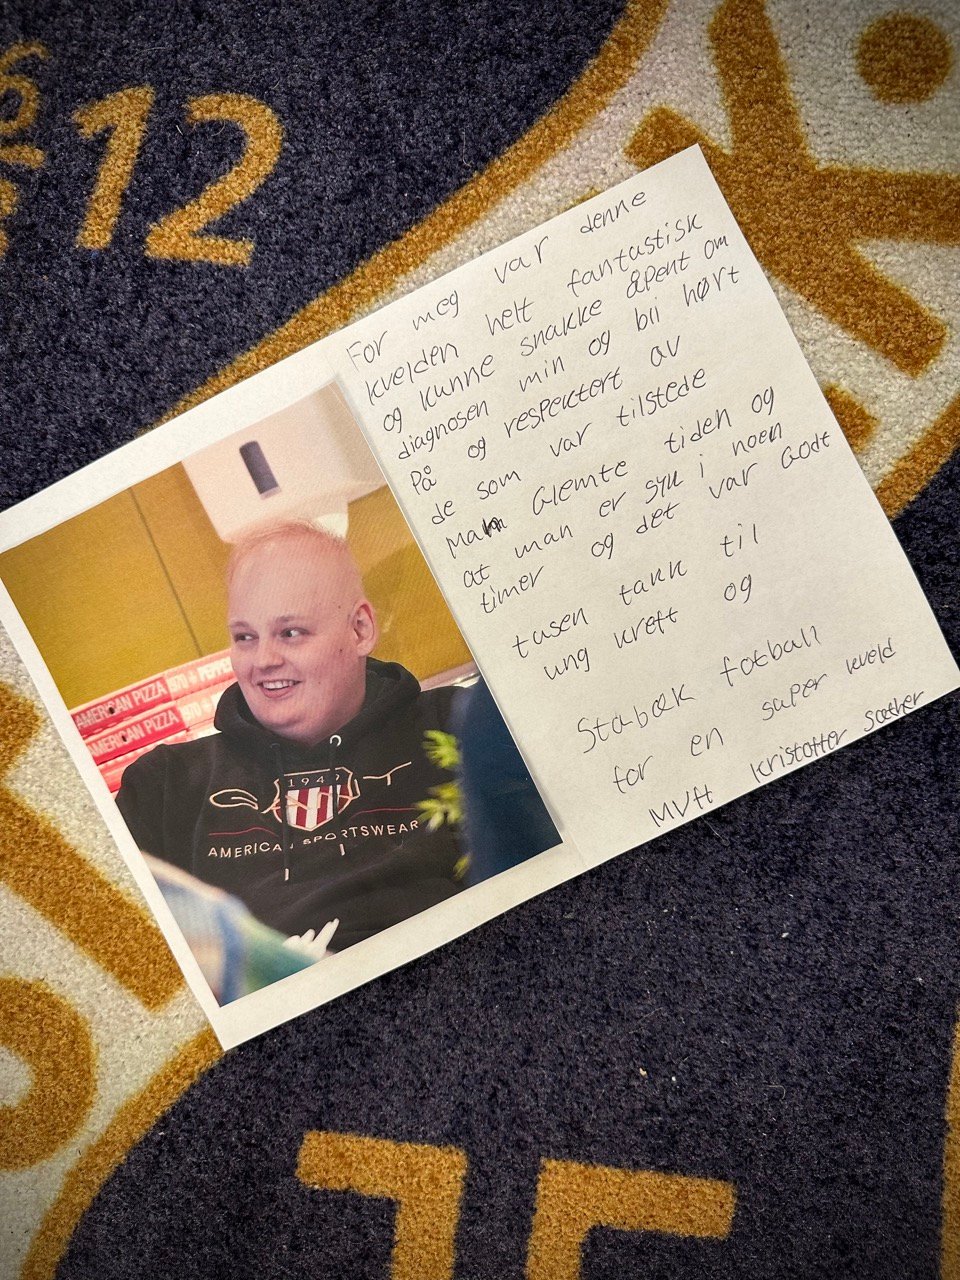 12
AMERICAN PIZZA
AMERICAN PIZZA
1949
GANT
AMERICAN SPORTSWEAR
For meg var denne
kvelden helt fantastisk
og kunne snakke åpent om
diagnosen min og bli hørt
på og respektert av
de som var tilstede
Man Glemte tiden og
at man er syk i noen
timer og det var Godt
tusen takk til
ung kreft og
Stabæk fotball
for en super kveld
Mvh Kristoffer Sæther